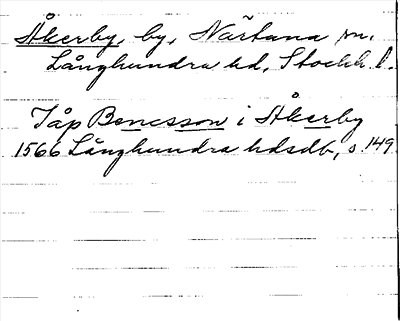 Åkerby, by, Närtuna sn.
Långhundra hd, Stockh. l.
Jåp Bencsson i Åkerby
1566 Långhundra hdsdb, s. 149